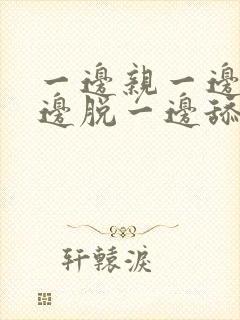 一邊親一邊
邊脱一邊舔
轩辕淚